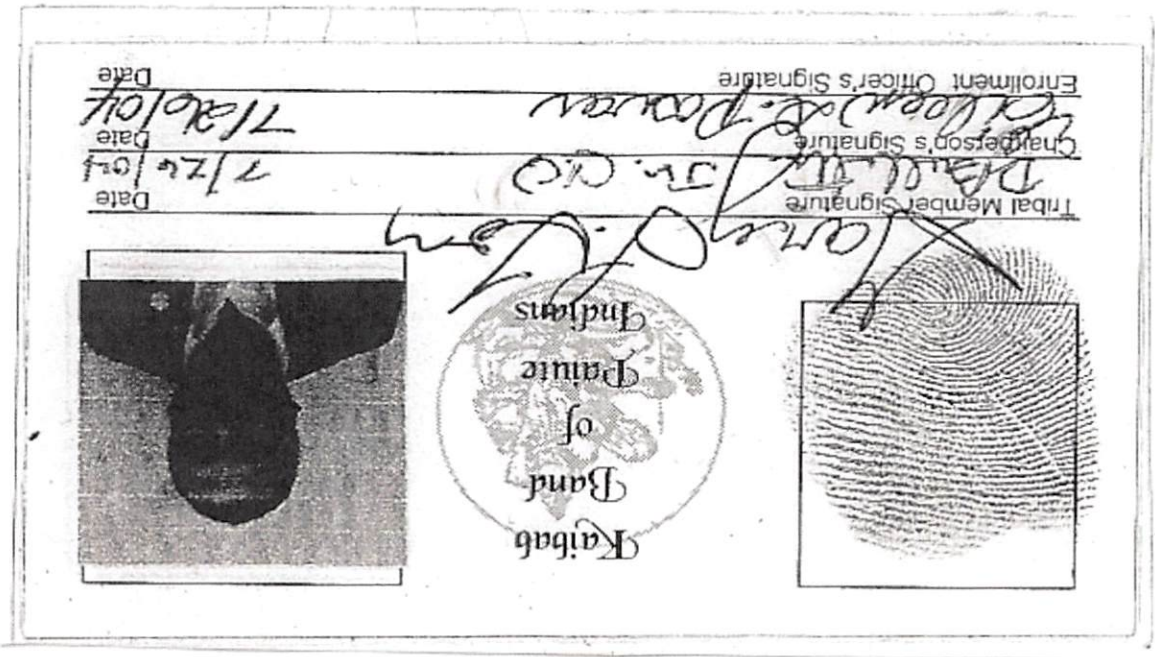 Kaibab
Band
of
Paiute
Indians
Tribal Member Signature Date
7/26/04
Chairperson's Signature Date
7/26/04
Enrollment Officer's Signature Date